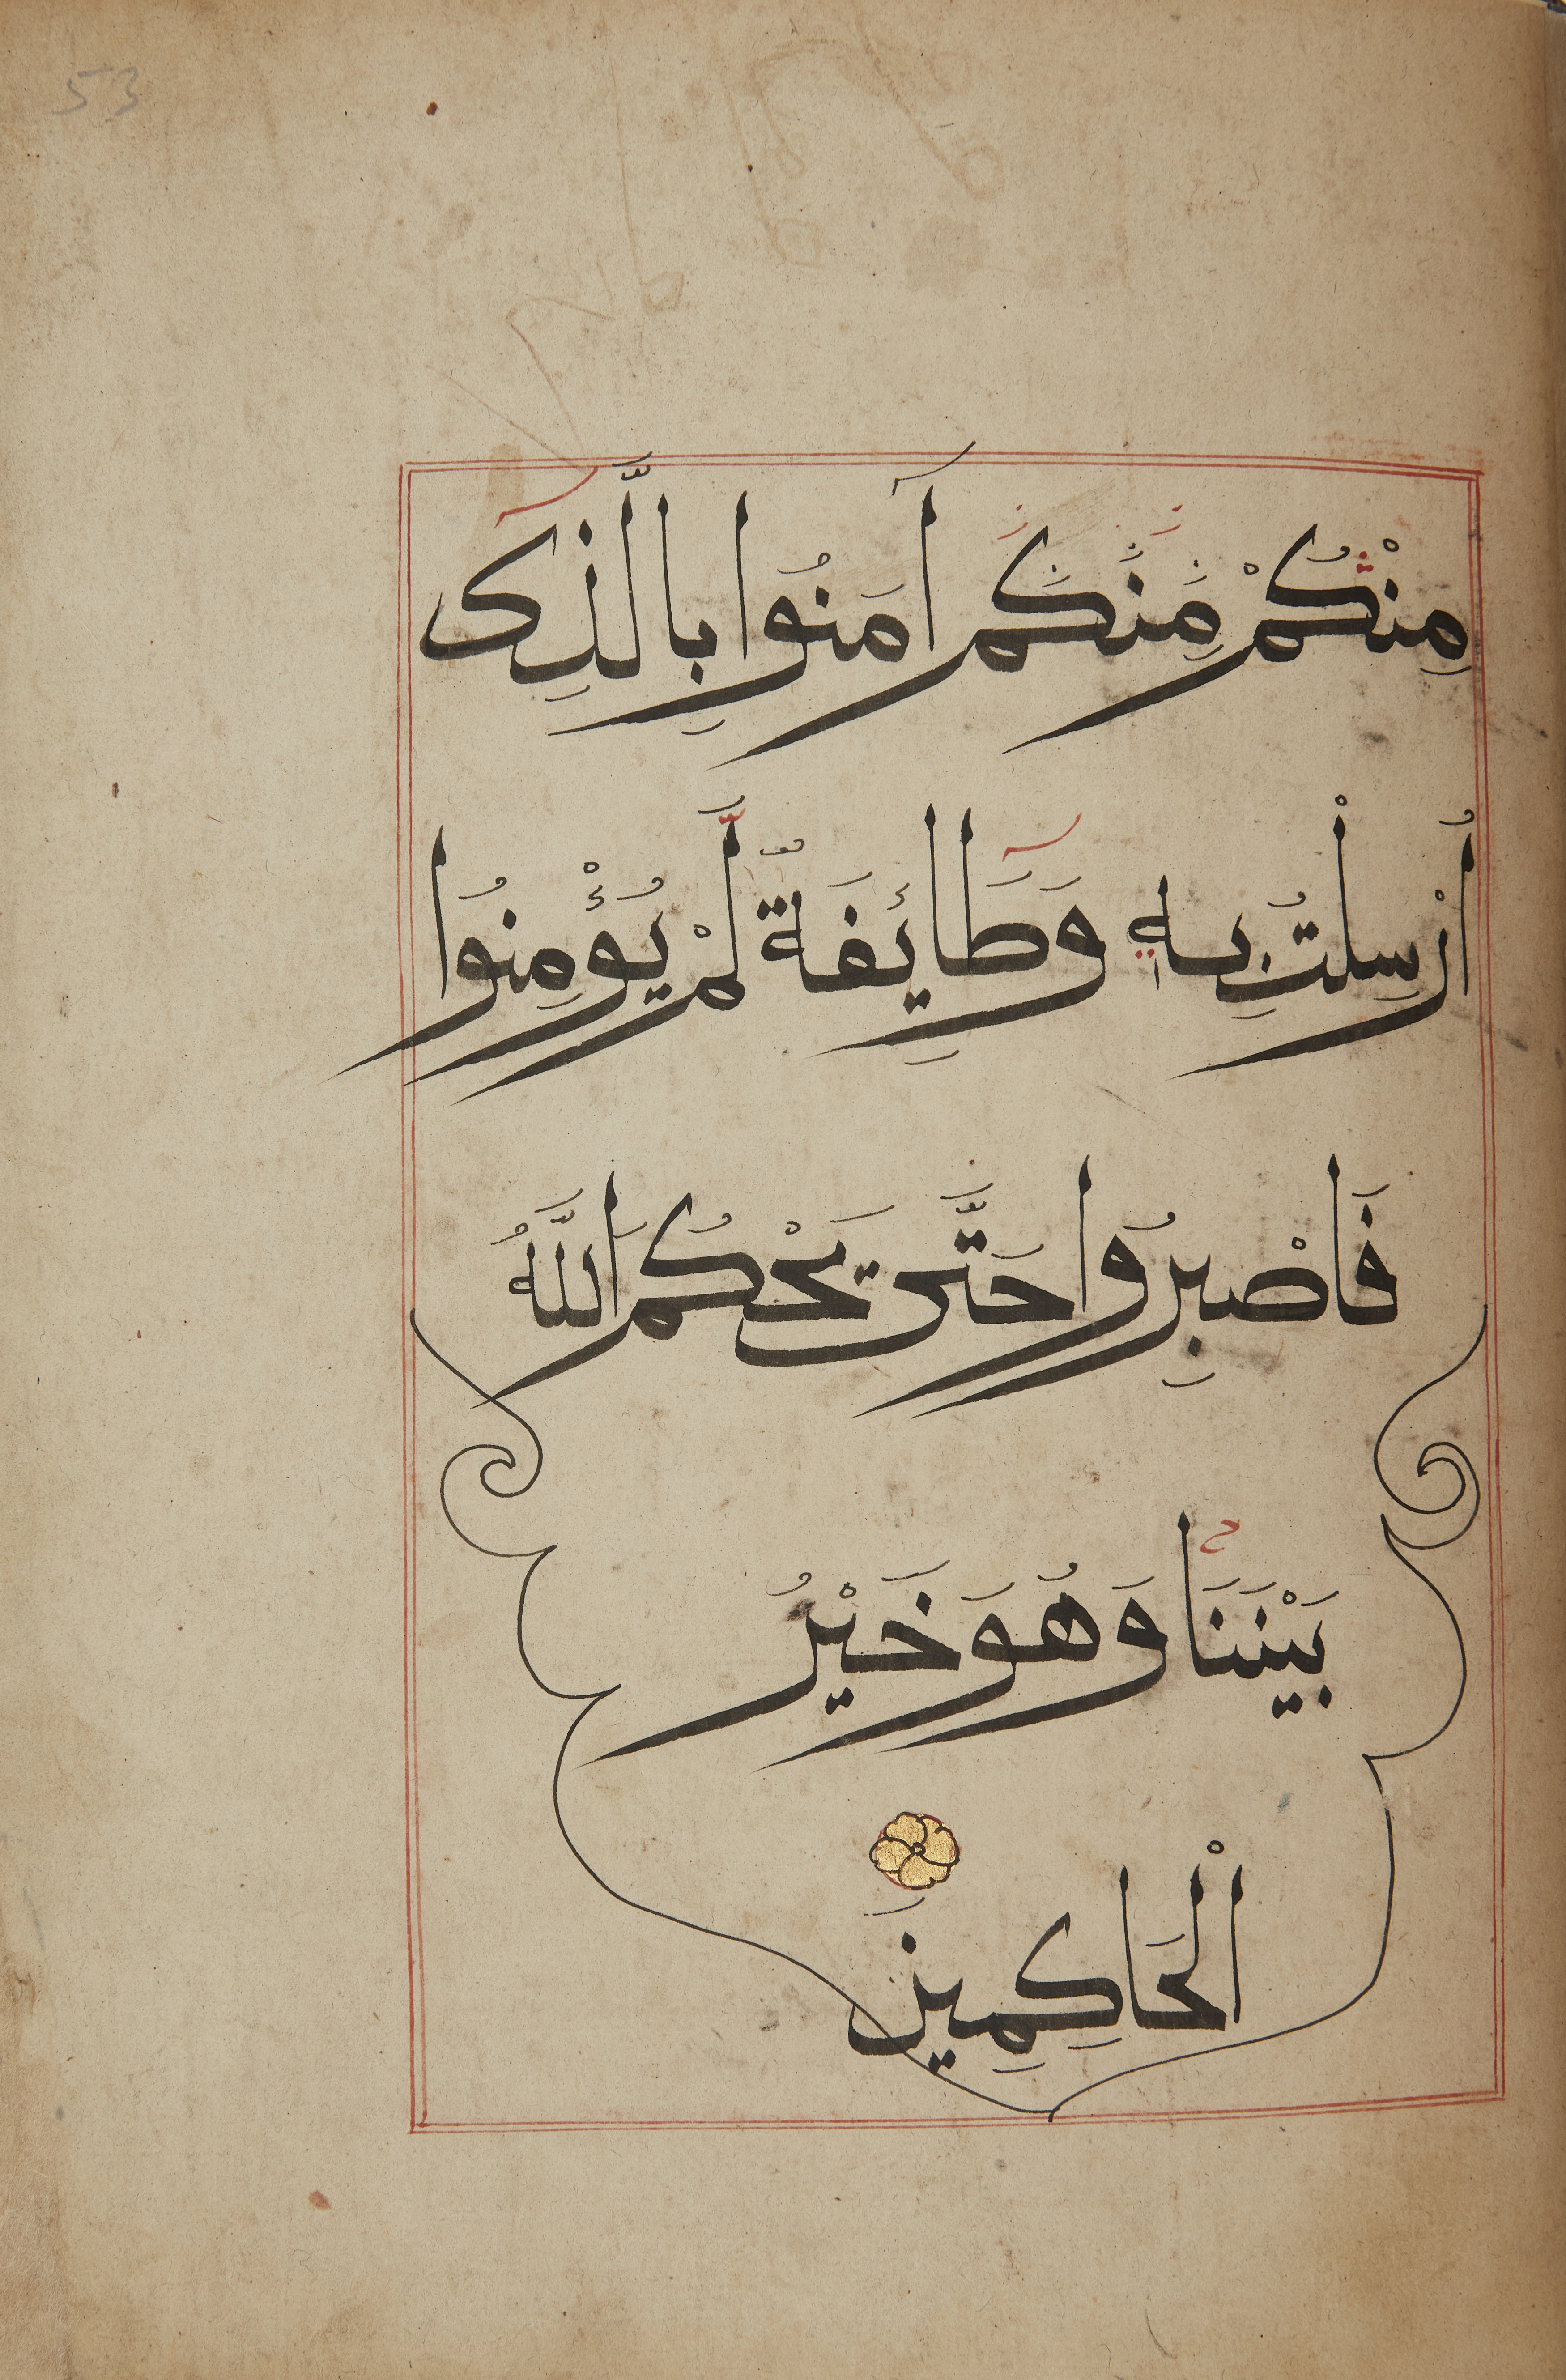 53
مِنْكُمْ مِنكُم آمَنُوا بِالَّذِى
أُرْسِلْتُ بِهِ وَطَائِفَةٌ لَّمْ يُؤْمِنُوا
فَاصْبِرُوا حَتَّى يَحْكُمَ اللَّهُ
بَيْنَنَا وَهُوَ خَيْرُ
الْحَاكِمِينَ